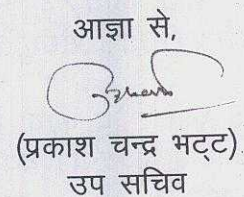 आज्ञा से,
(प्रकाश चन्द्र भट्ट)
उप सचिव